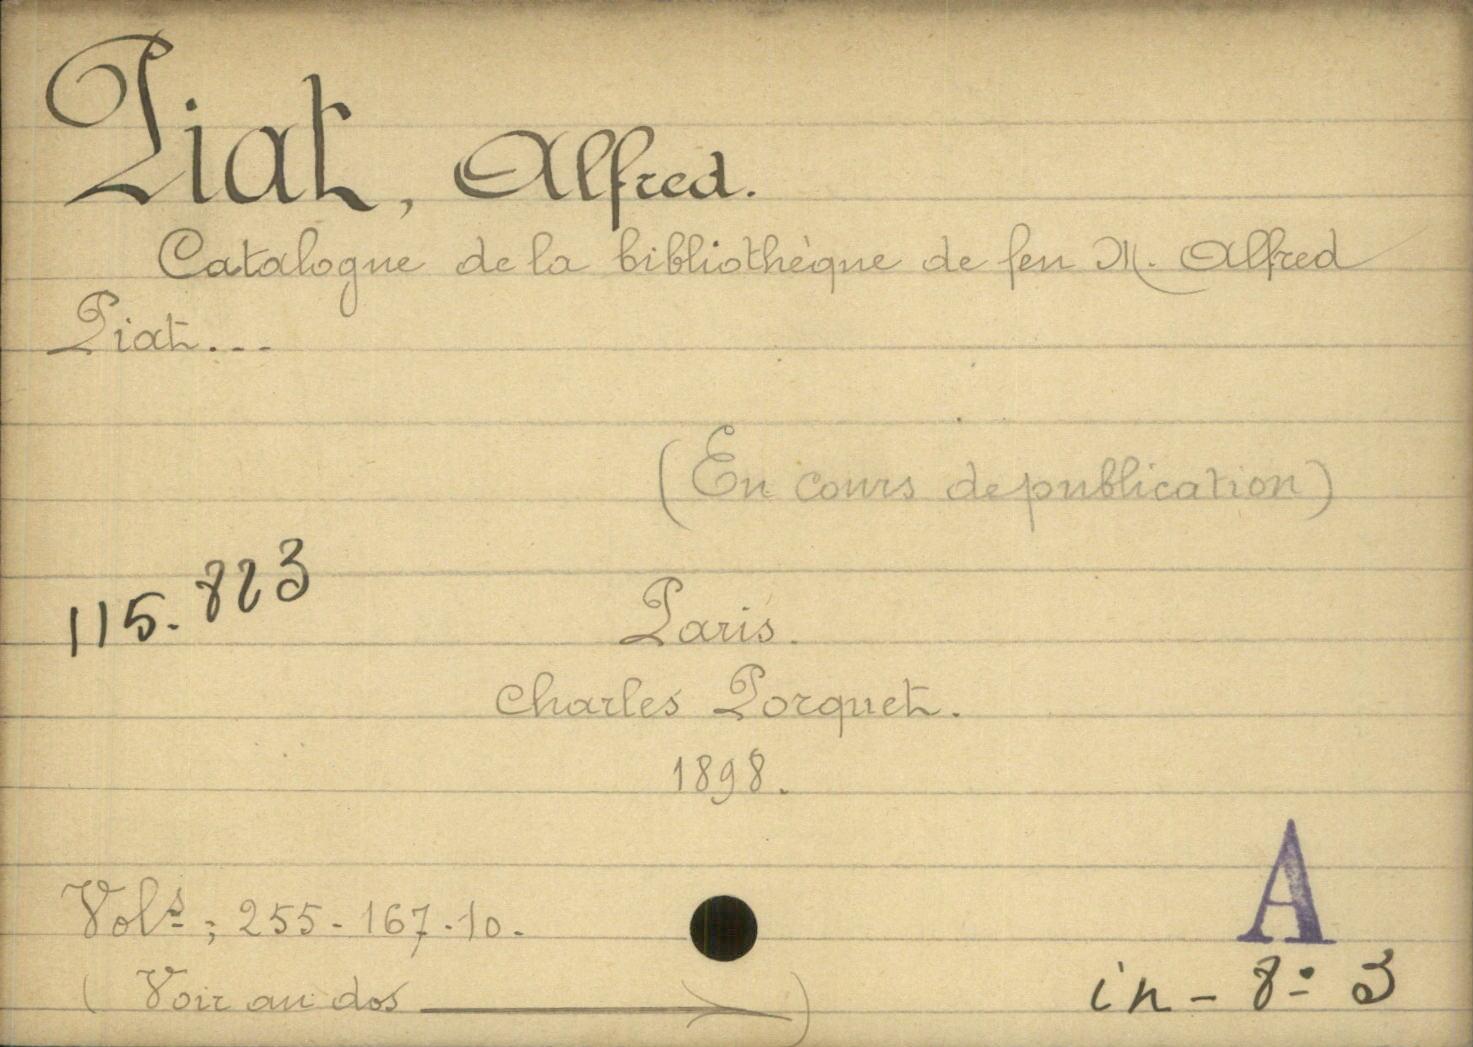 Piat, Alfred.
Catalogue de la bibliothèque de feu M. Alfred
Piat...
(En cours de publication)
115.823
Paris.
Charles Porquet.
1898.
Vols; 255-167-10.
(Voir au dos)
A
in-8º 3